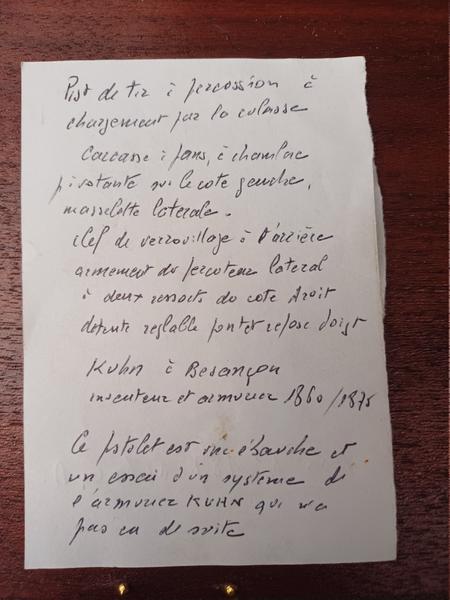 Pist de tir à percossion à
chargement par la culasse
Carcasse à pans, à chambre
pivotante sur le cote gauche,
masselotte laterale.
clef de verrouillage à l'arrière
armement du percuteur lateral
à deux ressorts du cote droit
detente reglable pontet repose doigt
Kuhn à Besançon
inventeur et armurier 1860/1875
Ce pistolet est une ébauche et
un essai d'un système de
l'armurier KUHN qui n'a
pas eu de suite